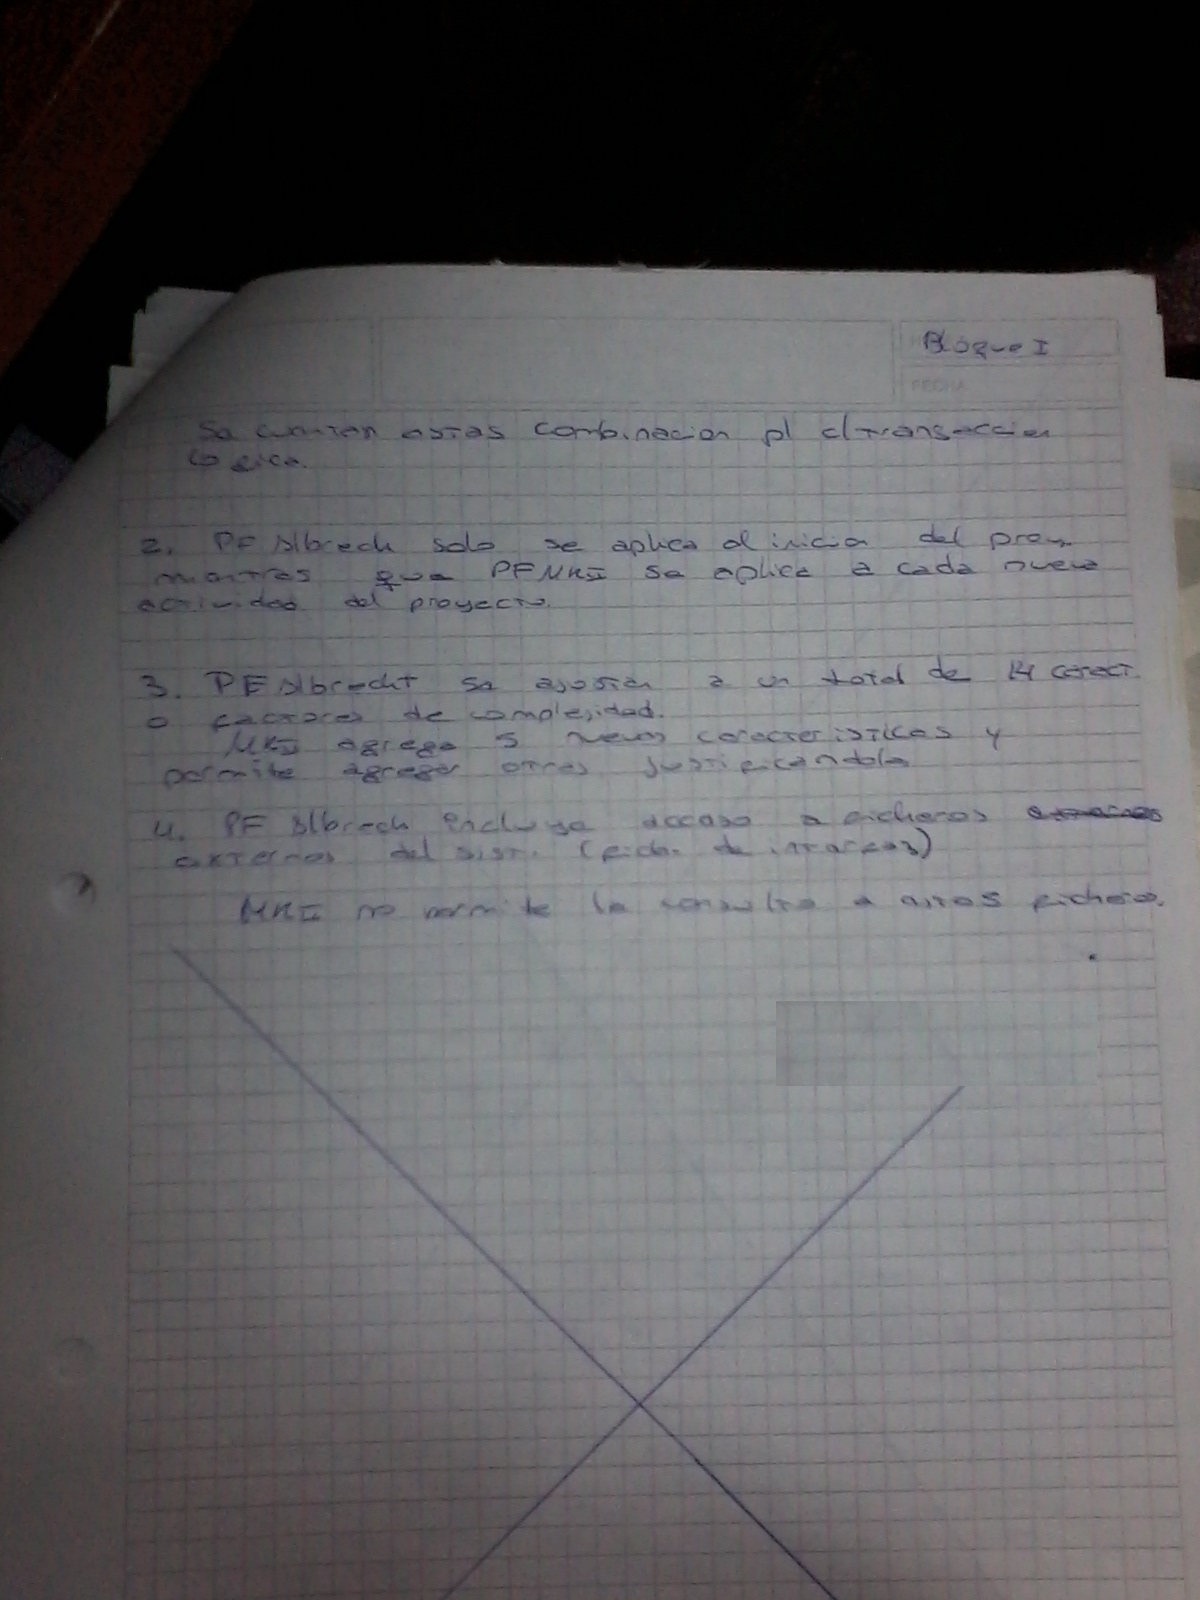 Bloque I
FECHA
Se cuentan estas combinacion p/ c/transaccion
logica.
2. PF Albrech solo se aplica al inicio del proy.
mientras que PFMKII se aplica a cada nueva
actividad del proyecto.
3. PF Albrecht se ajustan a un total de 14 caract.
o factores de complejidad.
MKII agrega 5 nuevas caracteristicas y
permite agregar otras justificandola
4. PF Albrech incluye acceso a ficheros
externos del sist. (fich. de interfaz)
MKII no permite la consulta a estos ficheros.